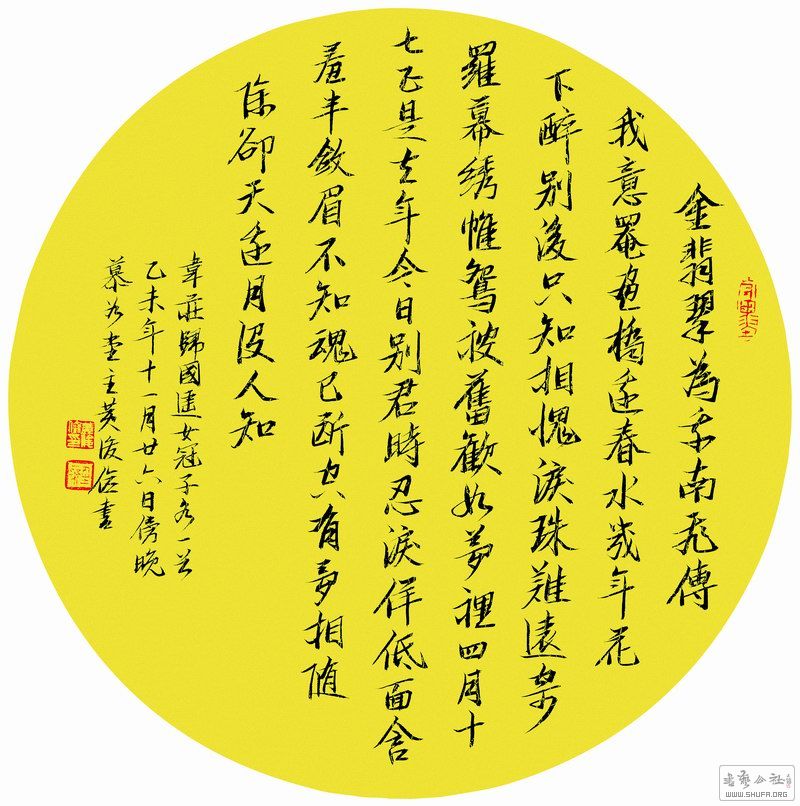 金翡翠為我南飛傳
我意罨畫橋邊春水幾年花
下醉別後只知相愧淚珠難遠寄
羅幕綉帷鴛被舊歡如夢裡四月十
七正是去年今日別君時忍淚佯低面含
羞半斂眉不知魂已斷空有夢相隨
除卻天邊月沒人知
韋莊歸國遙女冠子各一首
乙未年十一月廿六日傍晚
堂主黃俊儉書
書藝公社
WWW.SHUFA.ORG